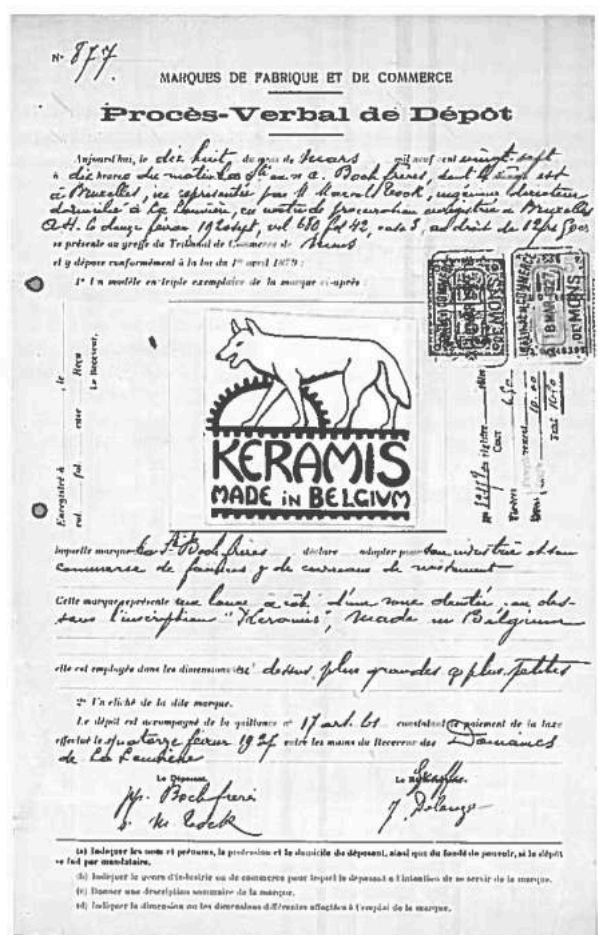 N° 877
MARQUES DE FABRIQUE ET DE COMMERCE
Procès-Verbal de Dépôt
Aujourd'hui, le dix huit du mois de Mars mil neuf cent vingt-sept
à dix heures du matin La Sté an. Boch frères, dont le siège est
à Bruxelles, ici représentée par M. Marcel Tock, ingénieur directeur
domicilié à La Louvière, en vertu de procuration enregistrée à Bruxelles
A.H. le douze février 1920 sept, vol 610 fol 42, case 5, au droit de 12 frs
se présente au greffe du Tribunal de Commerce de Mons
et y dépose conformément à la loi du 1er avril 1879 :
1° Un modèle en triple exemplaire de la marque ci-après :
Enregistré à , le
vol. fol. case Reçu
Le Receveur,
KERAMIS
MADE in BELGIVM
DE MONS
18 MAR 1927
DE MONS
du registre
Cout
6.50
10.00
16.50
laquelle marque la Sté Boch frères déclare adopter pour son industrie et son
commerce de faïences & de carreaux de revêtement
Cette marque représente une louve à côté d'une roue dentée, au des-
sous l'inscription "Keramis", Made in Belgium
elle est employée dans les dimensions ci-dessus, plus grandes & plus petites
2° Un cliché de la dite marque.
Le dépôt est accompagné de la quittance n° 17 art. 61 constatant le paiement de la taxe
effectué le quatorze février 1927 entre les mains du Receveur des Domaines
de La Louvière
Le Déposant,
Le Greffier.
pp. Boch frères
s. M. Tock
(a) Indiquer les nom et prénoms, la profession et le domicile du déposant, ainsi que du fondé de pouvoir, si le dépôt
se fait par mandataire.
(b) Indiquer le genre d'industrie ou de commerce pour lequel le déposant a l'intention de se servir de la marque.
(c) Donner une description sommaire de la marque.
(d) Indiquer la dimension ou les dimensions différentes affectées à l'emploi de la marque.